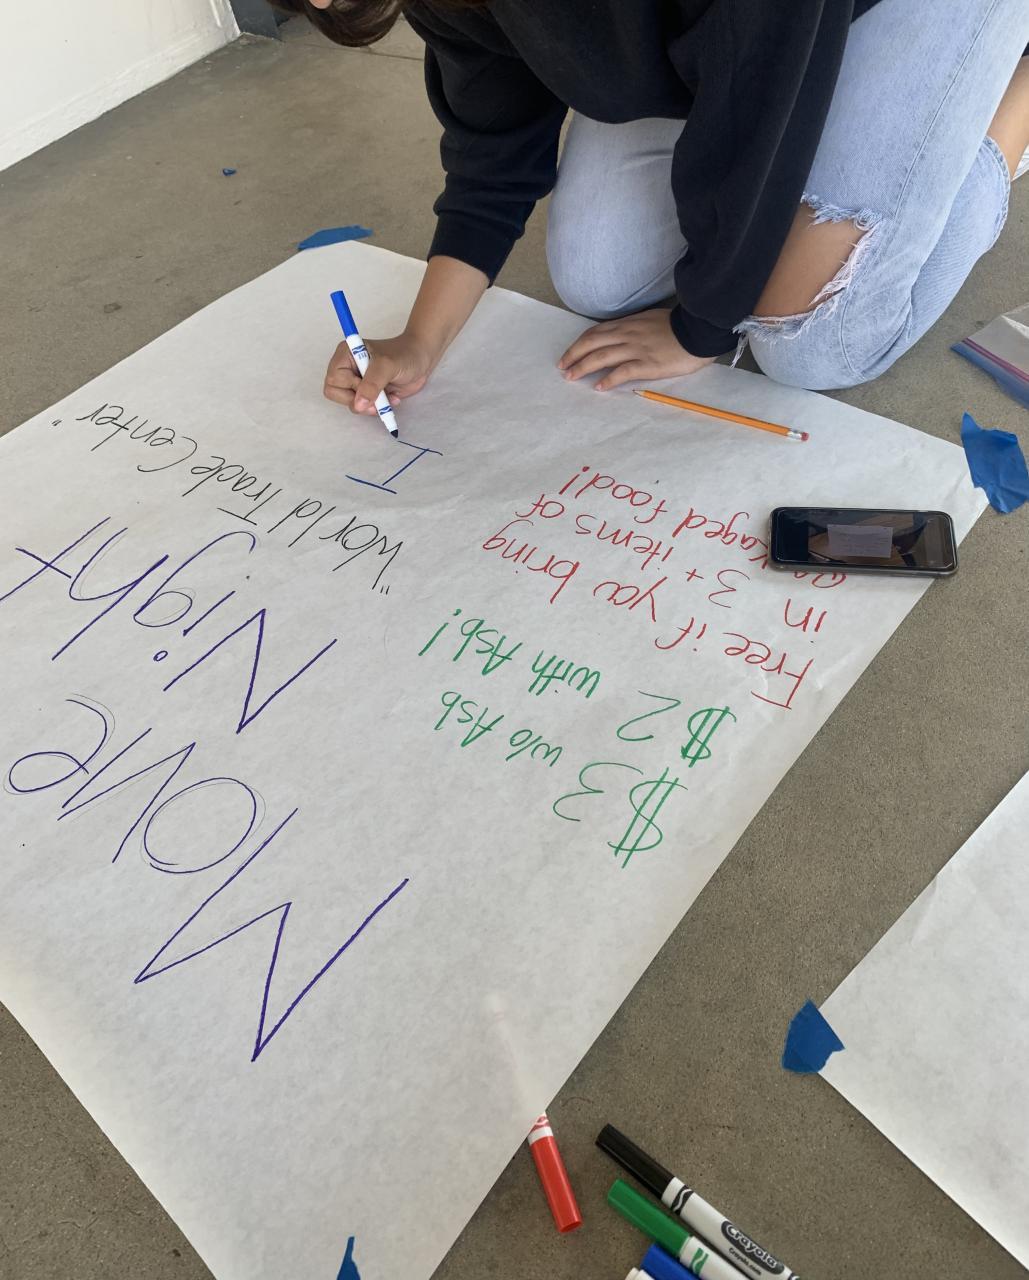 Movie
Night
"World Trade Center"
I
$3 w/o Asb
$2 with Asb!
Free if you bring
in 3+ items of
food!
Crayola